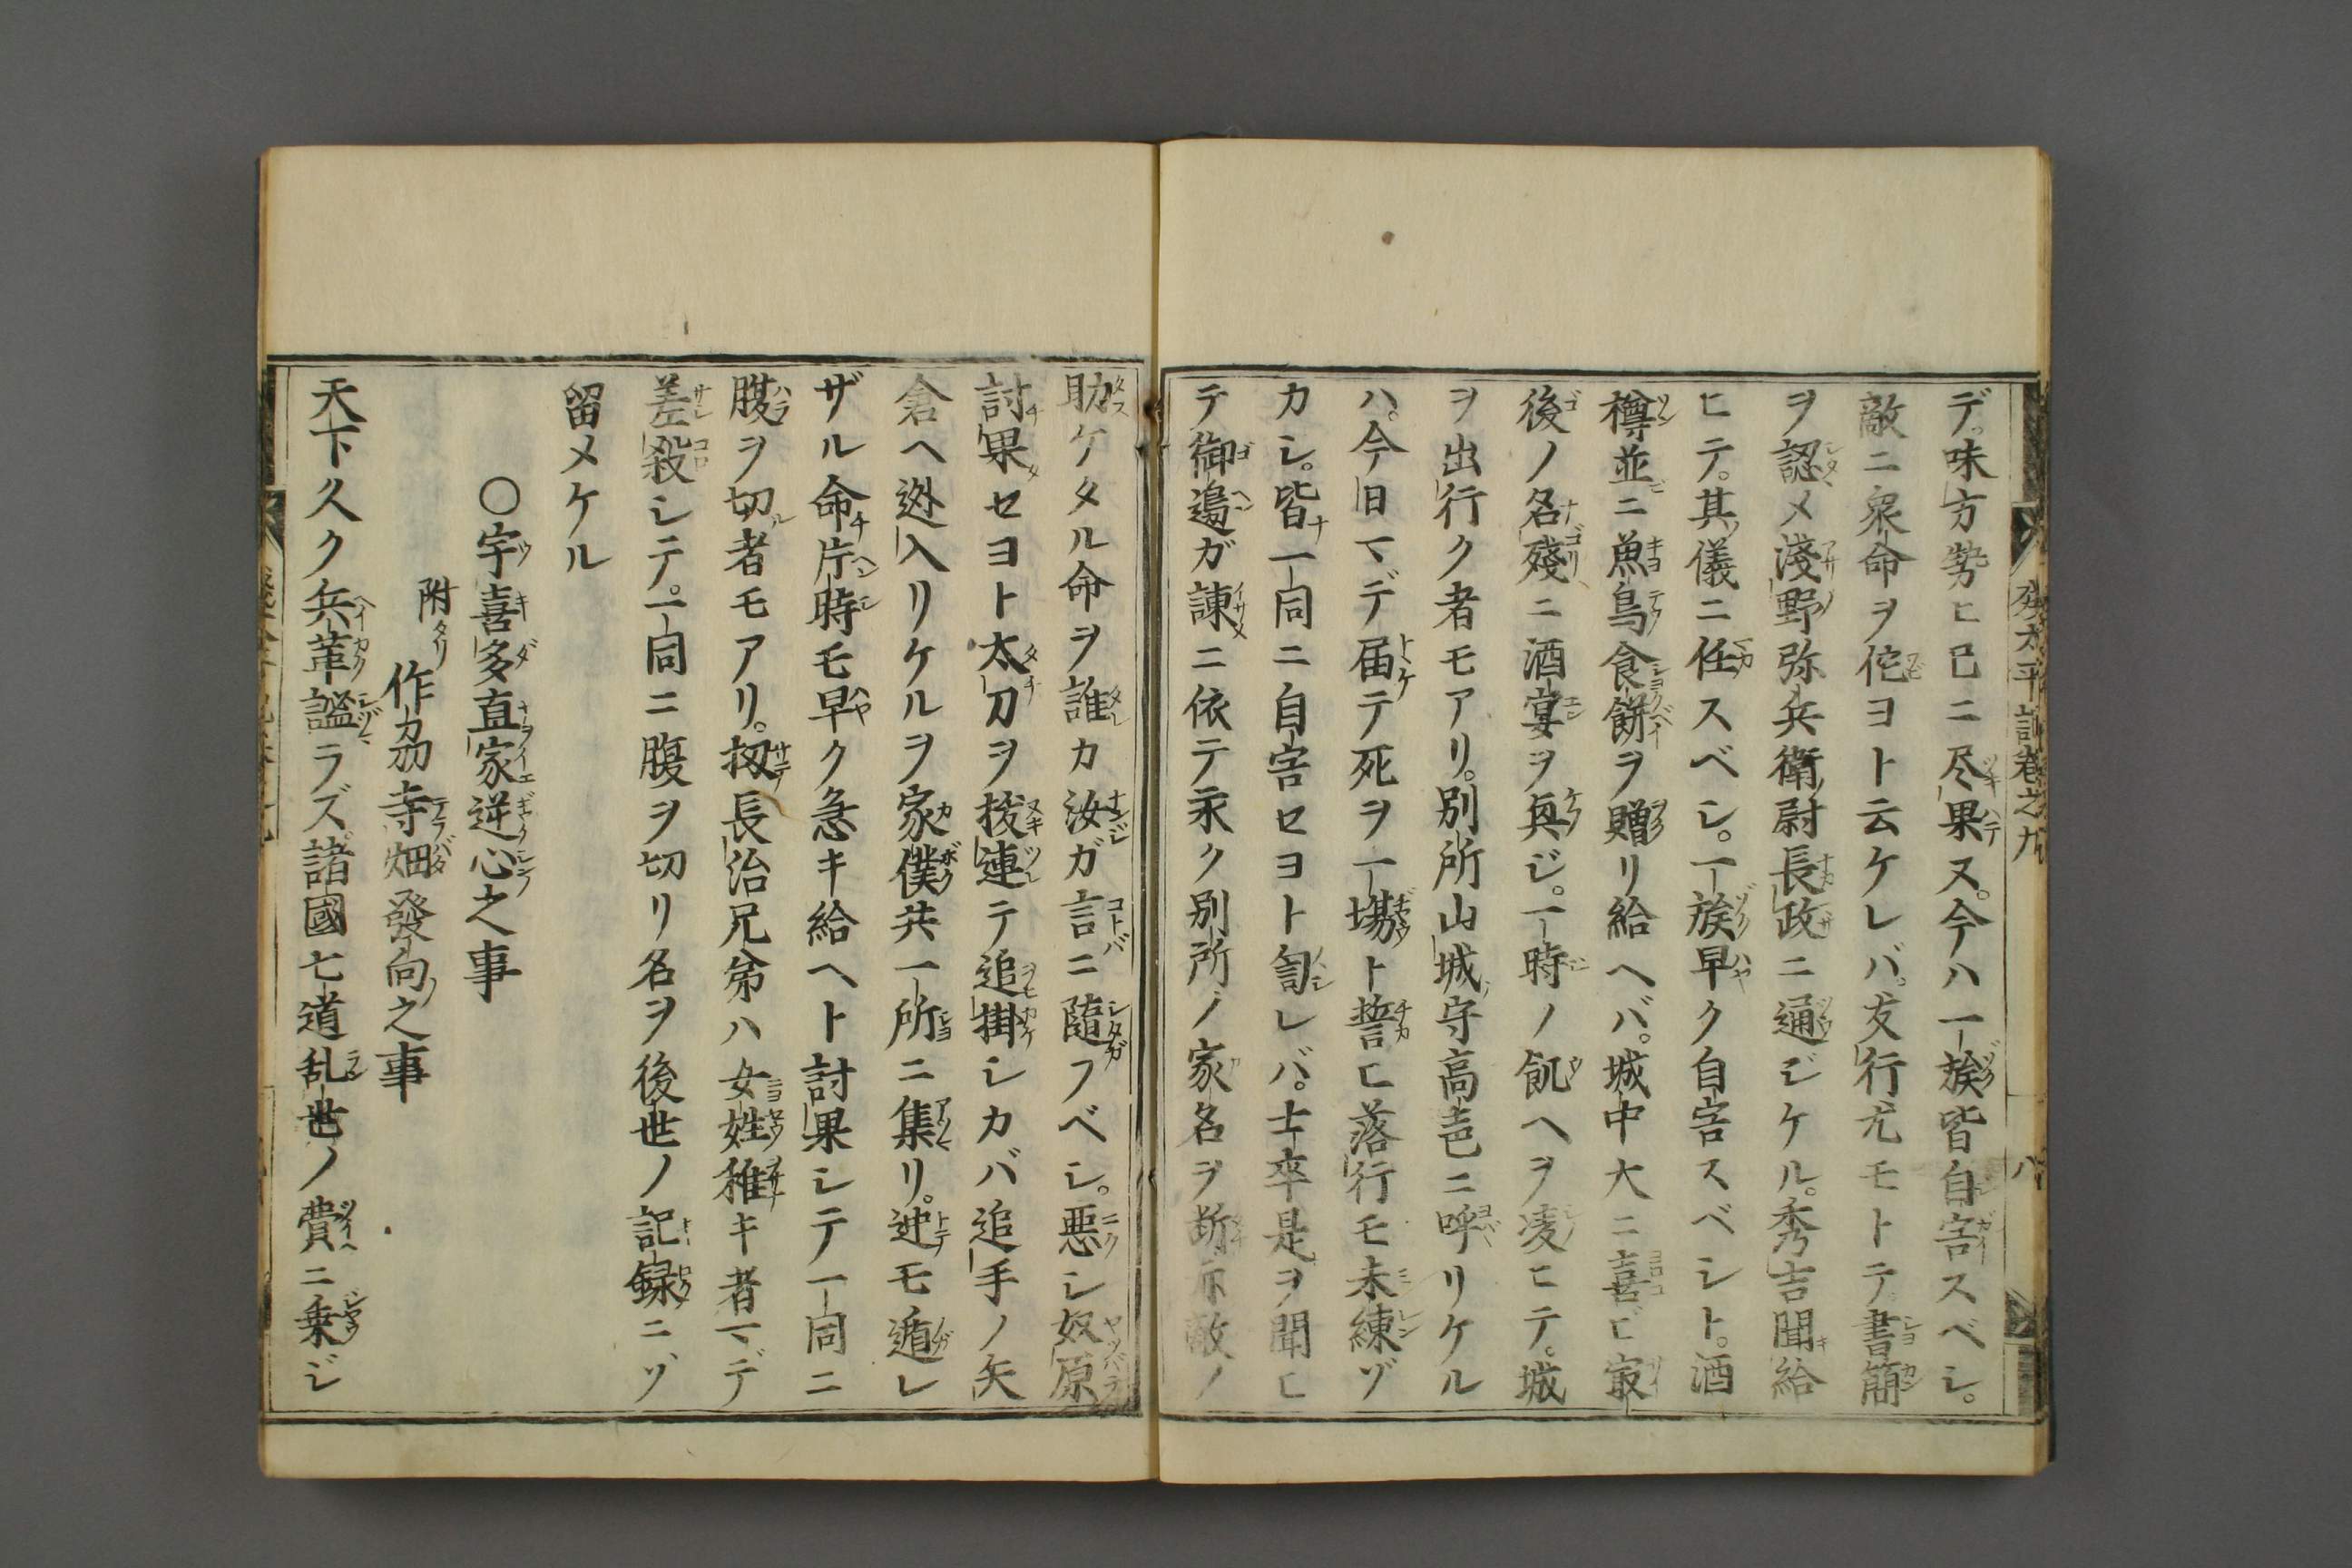 デ。味方勢ヒ已ニ尽果ヌ。今ハ一族皆自害スベシ。
敵ニ衆命ヲ佗ヨト云ケレバ。友行尤モトテ書簡
ヲ認メ淺野弥兵衛尉長政ニ通ジケル。秀吉聞給
ヒテ。其儀ニ任スベシ。一族早ク自害スベシト。酒
樽並ニ魚鳥食餅ヲ贈リ給ヘバ。城中大ニ喜ビ冣
後ノ名殘ニ酒宴ヲ興ジ。一時ノ飢ヘヲ凌ヒテ。城
ヲ出行ク者モアリ。別所山城守高壱ニ呼リケル
ハ。今日マデ届テ死ヲ一塲ト誓ヒ落行モ未練ヅ
カシ。皆一同ニ自害セヨト訇レバ。士卒是ヲ聞ヒ
テ御邉ガ諌ニ依テ永ク別所ノ家名ヲ断 敵ノ
助ケタル命ヲ誰カ汝ガ言ニ隨フベシ。悪シ奴原
討果セヨト太刀ヲ拔連テ追掛シカバ追手ノ矢
倉ヘ迯入リケルヲ家僕共一所ニ集リ。迚モ遁レ
ザル命片時モ早ク急キ給ヘト討果シテ一同ニ
腹ヲ切者モアリ。扨長治兄弟ハ女姓稚キ者マデ
差殺シテ。一同ニ腹ヲ切リ名ヲ後世ノ記録ニゾ
留メケル
〇宇喜多直家逆心之事
附リ 作刕寺畑發向之事
天下久ク兵革謐ラズ。諸國七道乱世ノ費ニ乗ジ
太平記卷之九
八